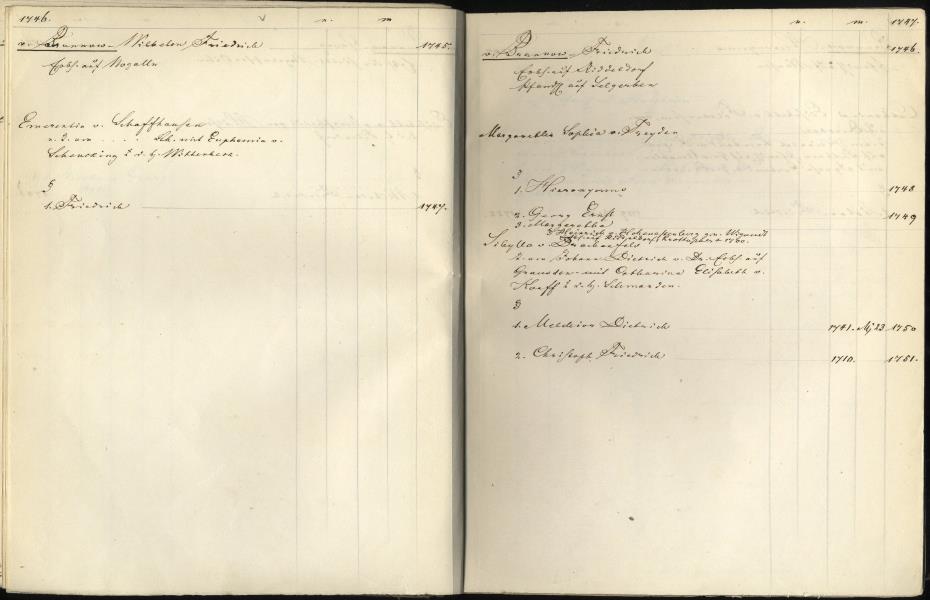 1746.
v. m
v. Brunnow Wilhelm Friedrich 1745.
Erbh. auf Nogalln
Emerentia v. Schaffhausen
Lth. mit Euphemia v.
Schencking a. d. H. Witkenberk.
§
1. Friedrich 1747.
v. m. 1747.
v. Brunnow Friedrich 1746.
Erbh. auf Riddeldorf
Pfandh. auf Selgerben
Margarethe Sophia v. Treyden
§
1. Hieronymus 1748
2. Georg Ernst 1749
3. Margaretha
Sibylla v. Drachenfels
T. von Johann Dietrich v. Dr. Erbh. auf
Grausden mit Catharina Elisabeth v.
Korff a. d. H. Schmarden.
§
1. Melchior Dietrich 1741. Mz 23. 1750
2. Christoph Friedrich 1710. 1751.